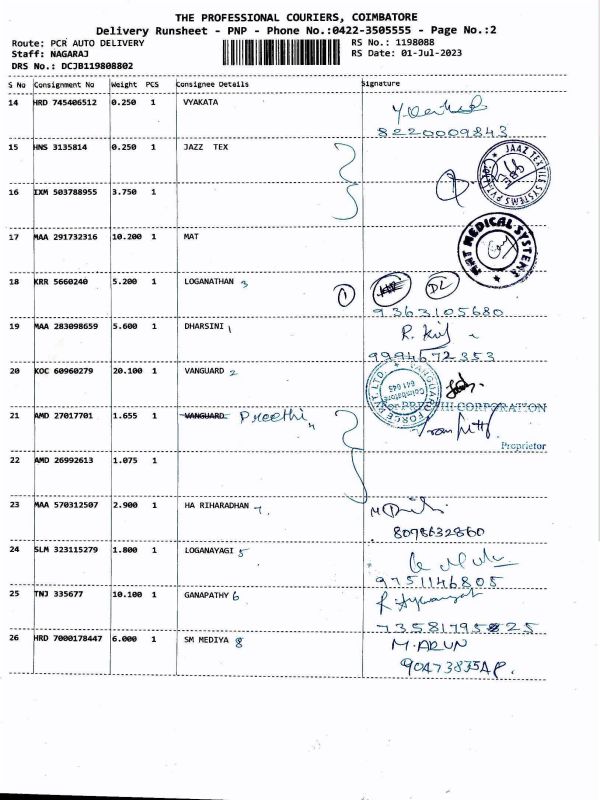 THE PROFESSIONAL COURIERS, COIMBATORE
Delivery Runsheet - PNP - Phone No.:0422-3505555 - Page No.:2
Route: PCR AUTO DELIVERY RS No.: 1198088
Staff: NAGARAJ RS Date: 01-Jul-2023
DRS No.: DCJB119808802
S No Consignment No Weight PCS Consignee Details Signature
14 HRD 745406512 0.250 1 VYAKATA
8220009843
15 HNS 3135814 0.250 1 JAZZ TEX
JAAZ TEXTILE SYSTEMS PVT LTD
16 IXM 503788955 3.750 1
17 MAA 291732316 10.200 1 MAT
MAT MEDICAL SYSTEMS
18 KRR 5660240 5.200 1 LOGANATHAN 3
1 DL
9363105680
19 MAA 283098659 5.600 1 DHARSINI 1
9994672353
20 KOC 60960279 20.100 1 VANGUARD 2
VANGUARD FORCE PVT. LTD. Coimbatore 641 045
CORPORATION
21 AMD 27017701 1.655 1 VANGUARD Preethi 4
Proprietor
22 AMD 26992613 1.075 1
23 MAA 570312507 2.900 1 HA RIHARADHAN 7
8098632860
24 SLM 323115279 1.800 1 LOGANAYAGI 5
9751146805
25 TNJ 335677 10.100 1 GANAPATHY 6
26 HRD 7000178447 6.000 1 SM MEDIYA 8
M. ARUN